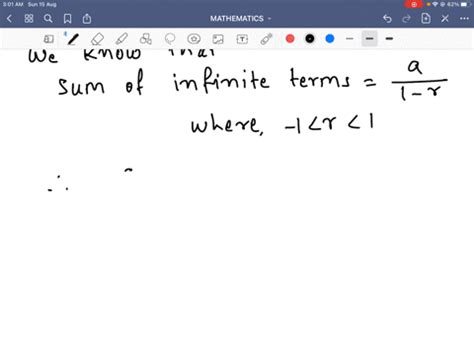 3:01 AM Sun 15 Aug
62%
MATHEMATICS
we know that
sum of infinite terms = a/(1-r)
where, -1<r<1
∴